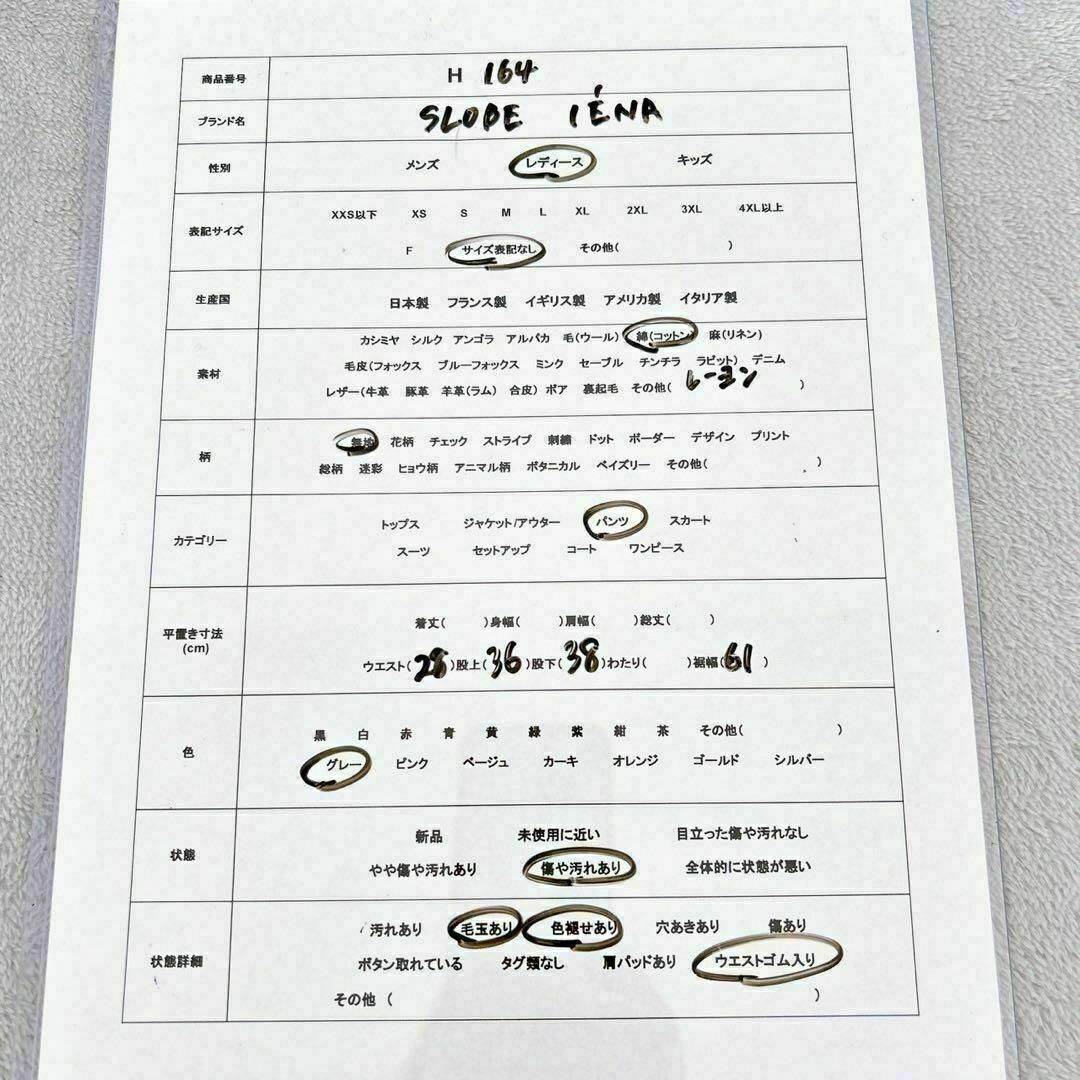 商品番号 H 164
ブランド名 SLOBE IÉNA
性別 メンズ レディース キッズ
XXS以下 XS S M L XL 2XL 3XL 4XL以上
表記サイズ
F サイズ表記なし その他( )
生産国 日本製 フランス製 イギリス製 アメリカ製 イタリア製
カシミヤ シルク アンゴラ アルパカ 毛(ウール) 綿(コットン) 麻(リネン)
毛皮(フォックス ブルーフォックス ミンク セーブル チンチラ ラビット) デニム
素材
レザー(牛革 豚革 羊革(ラム) 合皮) ボア 裏起毛 その他( レーヨン )
無地 花柄 チェック ストライプ 刺繍 ドット ボーダー デザイン プリント
柄
総柄 迷彩 ヒョウ柄 アニマル柄 ボタニカル ペイズリー その他( )
トップス ジャケット/アウター パンツ スカート
カテゴリー
スーツ セットアップ コート ワンピース
着丈( )身幅( )肩幅( )総丈( )
平置き寸法
(cm)
ウエスト(28)股上(36)股下(38)わたり( )裾幅(61)
黒 白 赤 青 黄 緑 紫 紺 茶 その他( )
色
グレー ピンク ベージュ カーキ オレンジ ゴールド シルバー
新品 未使用に近い 目立った傷や汚れなし
状態
やや傷や汚れあり 傷や汚れあり 全体的に状態が悪い
汚れあり 毛玉あり 色褪せあり 穴あきあり 傷あり
状態詳細 ボタン取れている タグ類なし 肩パッドあり ウエストゴム入り
その他 ( )